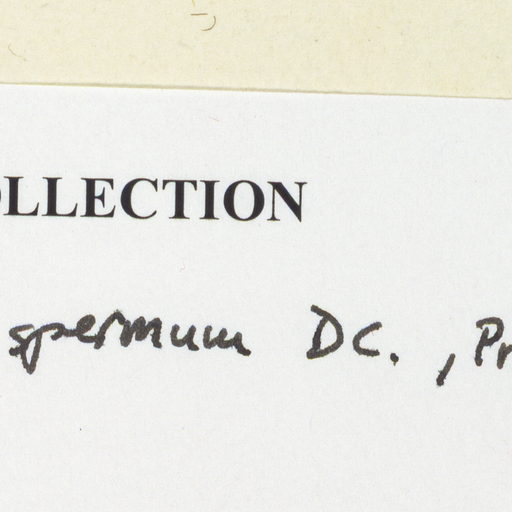 OLLECTION
spermum DC., Pr